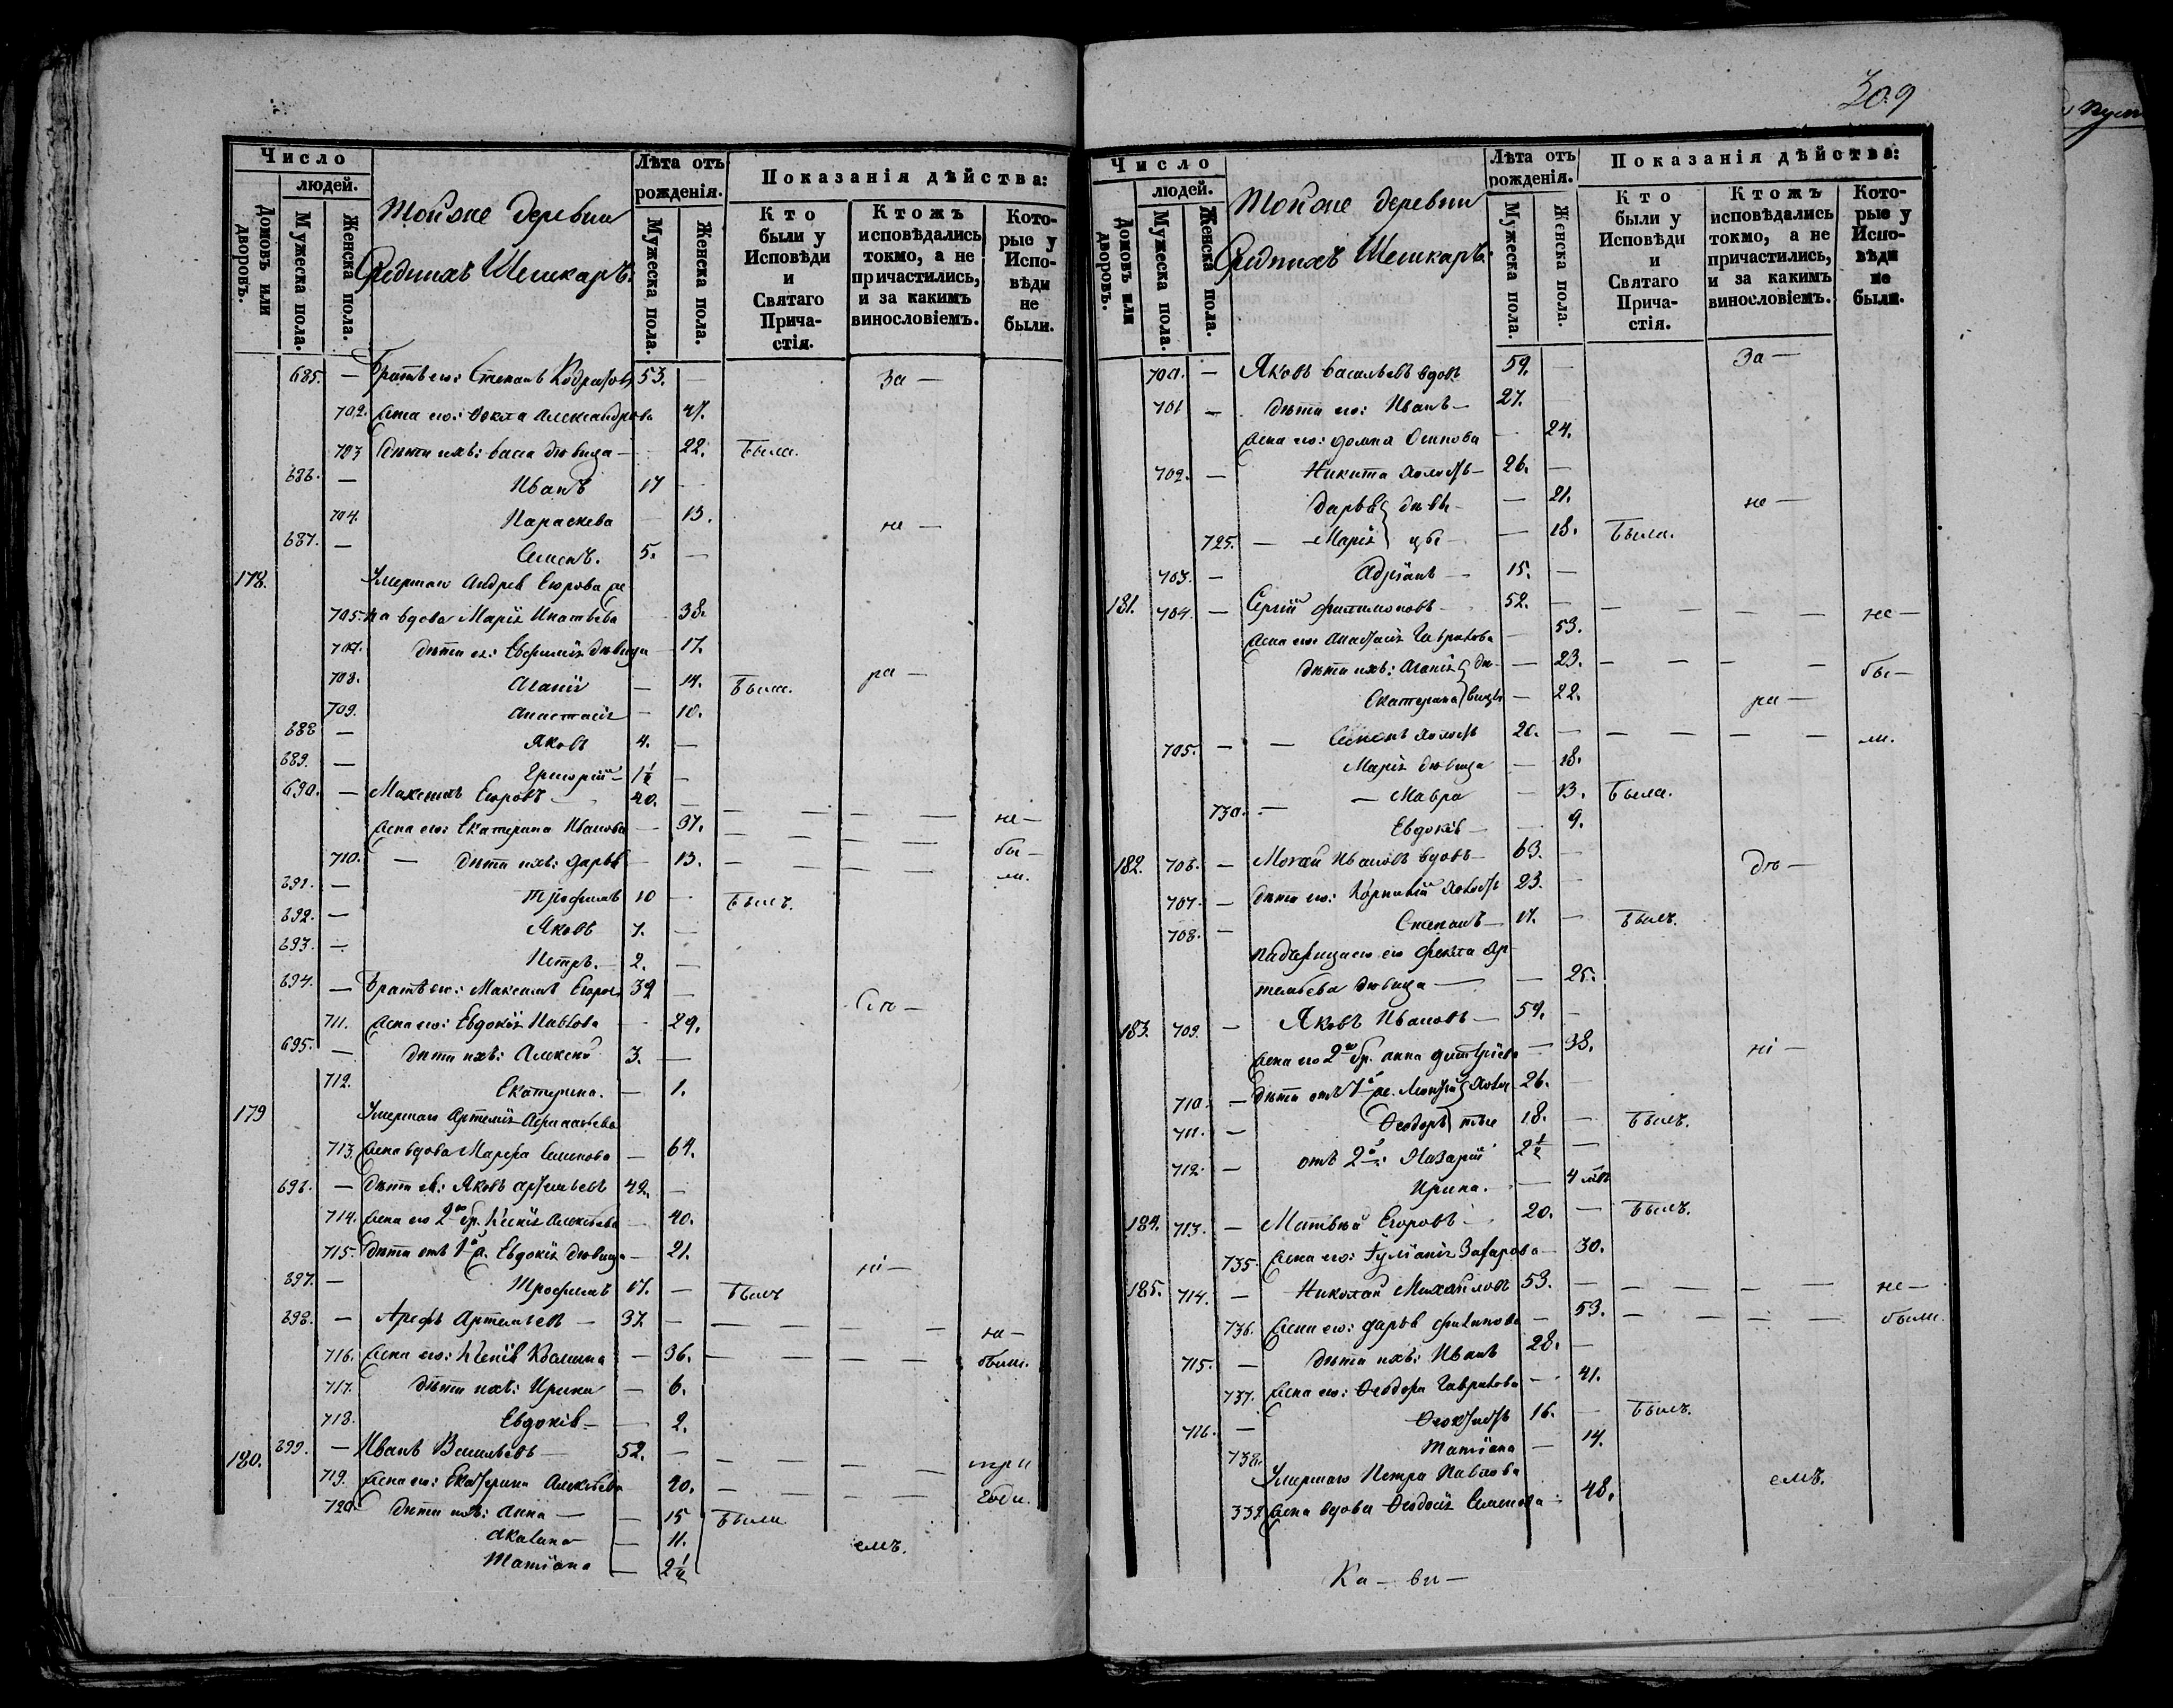 309
Число
людей.
Домовъ или дворовъ.
Мужеска пола.
Женска пола.
Тойже деревни
Среднихъ Шешкаръ:
Лѣта отъ рожденія.
Мужеска пола.
Женска пола.
Показанія дѣйства:
Кто были у Исповѣди и Святаго Прича-стія.
Ктожъ исповѣдались токмо, а не причастились, и за какимъ винословіемъ.
Кото-рые у Испо-вѣди не были.
685. — Братъ его: Степанъ 53. — за —
702. жена его: Александрова 47.
703 дѣти ихъ: васса дѣвица — 22. была.
686. — Иванъ 17 —
704. Параскева — 13. не —
687. — Семенъ. 5. —
178. Умершаго Андрея Егорова же
705. на вдова Марія Игнатьева 38.
707. дѣти ея: Евфимія дѣвица 17.
708. Агапія — 14. были. ра —
709. Анастасія — 10.
688 — Яковъ 4. —
689. — Григорій — 1½ —
690. — Максимъ Егоровъ — 40. — — — — не —
жена его: Екатерина Иванова — 37. — — — бы —
710. — дѣти ихъ: дарья — 13. — — — ли.
691. — Трофимъ 10 — былъ.
692. — Яковъ 7. —
693. — Петръ. — 2. —
694. — Братъ его: Максимъ Егоров 39 —
711. жена его: Евдокія Павлова — 29.
695. — дѣти ихъ: Алексей 3. —
712. Екатерина. — 1.
179 Умершаго Артемія
713. жена вдова Марфа Семенова — 64.
696. — дѣти ея: Яковъ артемьевъ 42. —
714. жена его 2го бр. Ксенія Алексѣева — 40.
715. дѣти отъ 1й ж. Евдокія дѣвица — 21.
697. — Трофимъ 17. — былъ ні —
698. — Арефъ Артемьевъ — 37. — — — — не —
716. жена его: Ксенія Козмина — 36. — — — — были.
717. дѣти ихъ: Ирина — 6.
718. Евдокія — — 2.
180. 699. — Иванъ Васильевъ — 52. — — — — три
719. жена его: Екатерина Алексѣева 40. — — — — года.
720. дѣти ихъ: Анна — — 15 были
Акилина — 11. емъ.
Татіана — 2½
Число
людей.
Домовъ или дворовъ.
Мужеска пола.
Женска пола.
Тойже деревни
Среднихъ Шешкаръ:
Лѣта отъ рожденія.
Мужеска пола.
Женска пола.
Показанія дѣйства:
Кто были у Исповѣди и Святаго Прича-стія.
Ктожъ исповѣдались токмо, а не причастились, и за какимъ винословіемъ.
Кото-рые у Испо-вѣди не были.
700. — Яковъ васильевъ вдовъ 59. — За —
701 — дѣти его: Иванъ — 27. —
жена его: домна Осипова — 24.
702. — Никита холостъ — 26. —
дарья дѣви- — 21. не —
725. — — Марія цы — — 18. была.
703. — Адріанъ — 15. —
181. 704. — Сергій филимоновъ — 52. — — — — — не —
жена его Анастасія Гаврилова — 53.
дѣти ихъ: Агапія дѣ- — 23. — — — — бы —
Екатерина вицы — 22. ра —
705. — — Семенъ холостъ 20. — — — — — ли.
Марія дѣвица — 18.
730. — — Мавра — 13. была.
Евдокія — — 9.
182. 706. — Мокай Ивановъ вдовъ — 63. — дѣ —
707. — дѣти его: Корнилій холостъ 23. —
708. — Степанъ — 17. — былъ.
падчерица его Фекла Ар-
темьева дѣвица — — 25.
183. 709. — Яковъ Ивановъ — 59. —
жена его 2го бр. анна димитріева — 38. ні —
710. — дѣти отъ 1й ж. холос 26. —
711. — Ѳеодоръ тые 18. — былъ.
712. — отъ 2й: Назарій 2½ —
Ирина. — 4 мѣс
184. 713. — Матвѣй Егоровъ — 20. — былъ.
735. жена его: Іуліанія Захарова — 30.
185. 714. — Николай Михайловъ 53. — — — — — не —
736. жена его: дарья филипова — 53. — — — — были.
715. — дѣти ихъ: Иванъ 28. —
737. жена его: Ѳеодора Гаврилова — 41.
716. — Ѳеоктистъ 16. — былъ.
738. Татіана — 14.
Умершаго Петра Павлова
339. жена вдова Ѳеодосія Семенова — 48. емъ.
Ка — ви —